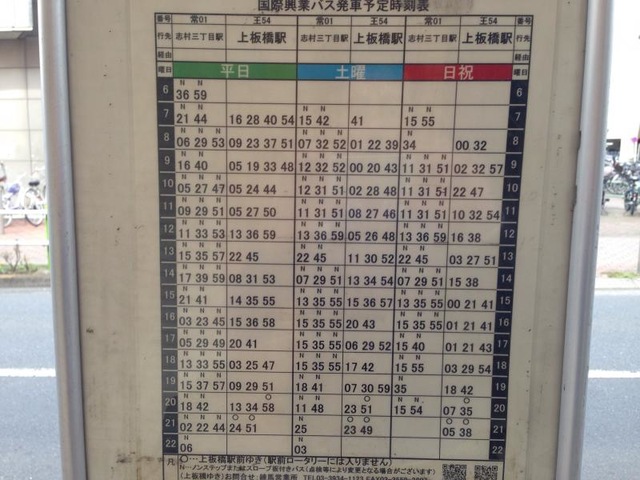 国際興業バス発車予定時刻表
番号 常01 王54 常01 王54 常01 王54 番号
行先 志村三丁目駅 上板橋駅 志村三丁目駅 上板橋駅 志村三丁目駅 上板橋駅 行先
経由 経由
曜日 平日 土曜 日祝 曜日
N N
6 36 59 6
N N N N N N
7 21 44 16 28 40 54 15 42 41 15 55 7
N N N N N N N
8 06 29 53 09 23 37 51 07 32 52 01 22 39 34 00 32 8
N N N N N N N N
9 16 40 05 19 33 48 12 32 52 00 20 43 11 31 51 02 32 57 9
N N N N N N N N N
10 05 27 47 05 24 44 12 31 51 02 28 48 11 31 51 22 47 10
N N N N N N N N N
11 09 29 51 05 27 50 11 31 51 08 27 46 11 31 51 10 32 54 11
N N N N N N N N N
12 11 33 53 13 36 59 13 36 59 05 26 48 13 36 59 16 38 12
N N N N N N N
13 15 35 57 22 45 22 45 11 30 52 22 45 03 27 51 13
N N N N N N N N N
14 17 39 59 08 31 53 07 29 51 13 34 54 07 29 51 15 38 14
N N N N N N N N
15 21 41 14 35 55 13 35 55 15 36 57 13 35 55 00 21 41 15
N N N N N N N N N
16 03 23 45 15 36 58 15 35 55 20 43 15 35 55 01 21 41 16
N N N N N N N N
17 05 29 49 20 41 15 35 55 06 29 52 15 40 01 21 43 17
N N N N N N N N
18 13 33 55 03 25 47 15 35 55 17 42 15 55 03 29 54 18
N N N N N N
19 15 37 57 09 29 51 18 41 07 30 59 35 18 42 19
N N ○ N N ○ N N ○
20 18 42 13 34 58 11 48 23 51 15 54 07 35 20
N N N ○ ○ N ○ ○ ○ ○
21 02 22 44 24 51 25 23 49 05 38 21
N N
22 06 03 22
凡 ○…上板橋駅前ゆき(駅前ロータリーには入りません)
N…ノンステップまたはスロープ板付きバス(点検等により変更となる場合がございます)
(上板橋ゆき)お問合せ:練馬営業所